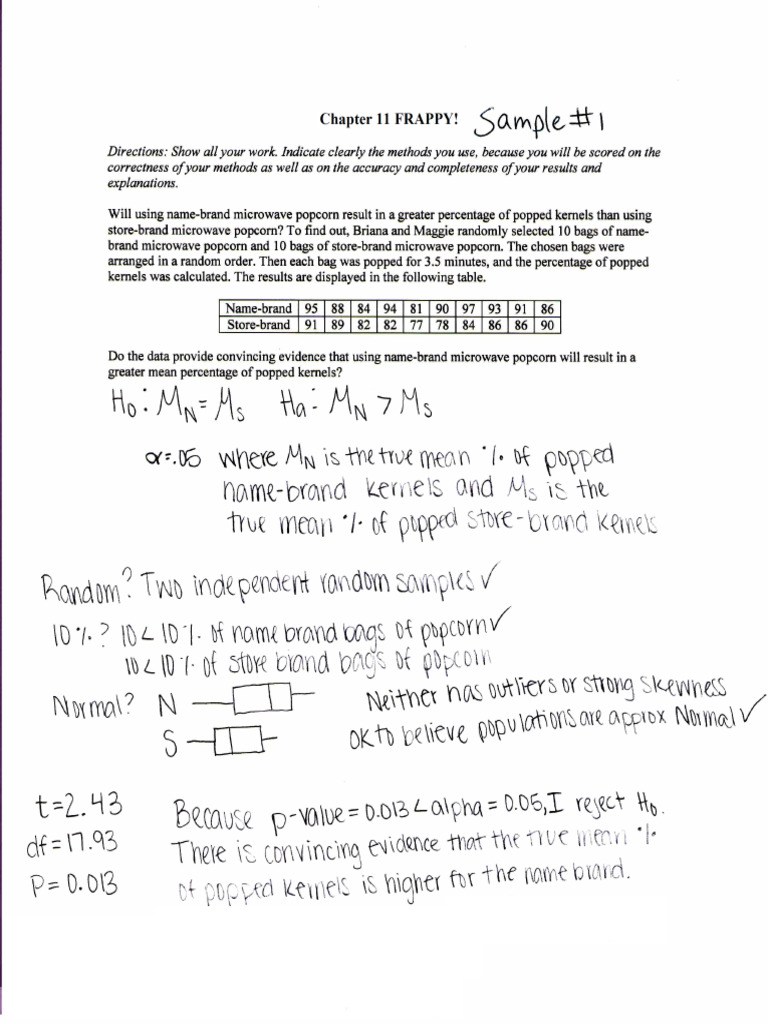 Chapter 11 FRAPPY! Sample #1
Directions: Show all your work. Indicate clearly the methods you use, because you will be scored on the
correctness of your methods as well as on the accuracy and completeness of your results and
explanations.
Will using name-brand microwave popcorn result in a greater percentage of popped kernels than using
store-brand microwave popcorn? To find out, Briana and Maggie randomly selected 10 bags of name-
brand microwave popcorn and 10 bags of store-brand microwave popcorn. The chosen bags were
arranged in a random order. Then each bag was popped for 3.5 minutes, and the percentage of popped
kernels was calculated. The results are displayed in the following table.
Name-brand 95 88 84 94 81 90 97 93 91 86
Store-brand 91 89 82 82 77 78 84 86 86 90
Do the data provide convincing evidence that using name-brand microwave popcorn will result in a
greater mean percentage of popped kernels?
H₀: μN = μS Ha: μN > μS
α=.05 where μN is the true mean % of popped
name-brand kernels and μS is the
true mean % of popped store-brand kernels
Random? Two independent random samples ✓
10%? 10 < 10% of name brand bags of popcorn ✓
10 < 10% of store brand bags of popcorn
Normal? N Neither has outliers or strong skewness
S OK to believe populations are approx Normal ✓
t=2.43 Because p-value = 0.013 < alpha = 0.05, I reject H₀.
df=17.93 There is convincing evidence that the true mean %
P=0.013 of popped kernels is higher for the name brand.